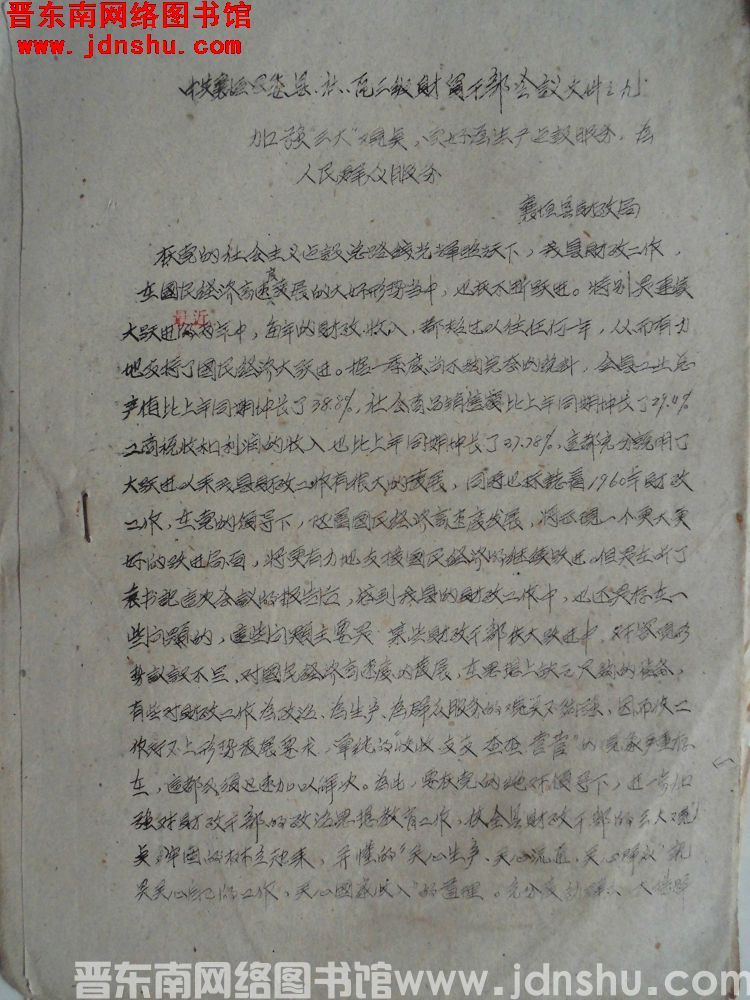 晋东南网络图书馆
www.jdnshu.com
中共襄垣县委县、社、队三级财贸干部会议文件之九
加强"三大"观点,更好为生产建设服务,为
人民群众服务
襄垣县财政局
在党的社会主义建设总路线光辉照跃下,我县财政工作,
在国民经济高速度发展的大好形势当中,也在不断跃进。特别是连续
大跃进的两年中,每年的财政收入,都超过以往任何一年,从而有力
最近
地支持了国民经济大跃进。据一季度尚不够完整的统计,全县工业总
产值比上年同期伸长了38.8%,社会商品销售额比上年同期伸长了29.4%
工商税收和利润的收入也比上年同期伸长了37.78%,这都充分说明了
大跃进以来我县财政工作有很大的发展,同时也标志着1960年财政
工作,在党的领导下,随着国民经济高速度发展,将出现一个更大更
好的跃进局面,将更有力地支援国民经济的继续跃进。但是在听了
袁书记这次会议的报告后,感到我县的财政工作中,也还是存在一
些问题的,这些问题主要是:某些财政干部在大跃进中,对客观形
势认识不足,对国民经济高速度的发展,在思想上缺乏足够的准备,
有些对财政工作为政治、为生产、为群众服务的观点不够强,因而使工
作对不上形势发展要求,单纯的"收收 支支 查查 营营"的现象严重存
在,这都必须迅速加以解决。为此,要在党的绝对领导下,进一步加
强对财政干部的政治思想教育工作,使全县财政干部的三大观
点牢固的树立起来,并懂的"关心生产、关心流通、关心群众"就
是关心自己的工作,关心国家收入"的道理。充分发动群众、大搞群
晋东南网络图书馆www.jdnshu.com